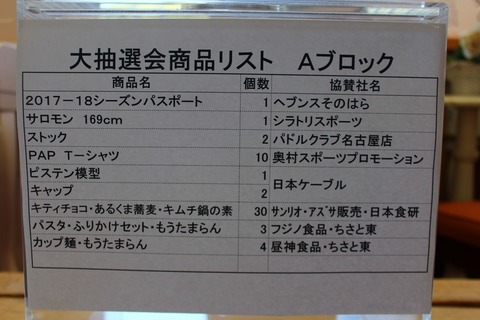 大抽選会商品リスト　Aブロック
商品名　個数　協賛社名
2017－18シーズンパスポート　1　ヘブンスそのはら
サロモン　169cm　1　シラトリスポーツ
ストック　2　パドルクラブ名古屋店
PAP　T－シャツ　10　奥村スポーツプロモーション
ピステン模型　1　日本ケーブル
キャップ　2
キティチョコ・あるくま蕎麦・キムチ鍋の素　30　サンリオ・アズサ販売・日本食研
パスタ・ふりかけセット・もうたまらん　3　フジノ食品・ちさと東
カップ麺・もうたまらん　4　昼神食品・ちさと東